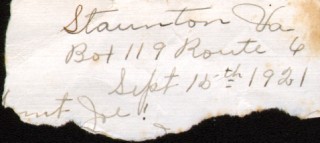 Staunton Va
Box 119 Route 6
Sept 15th 1921
Joe!